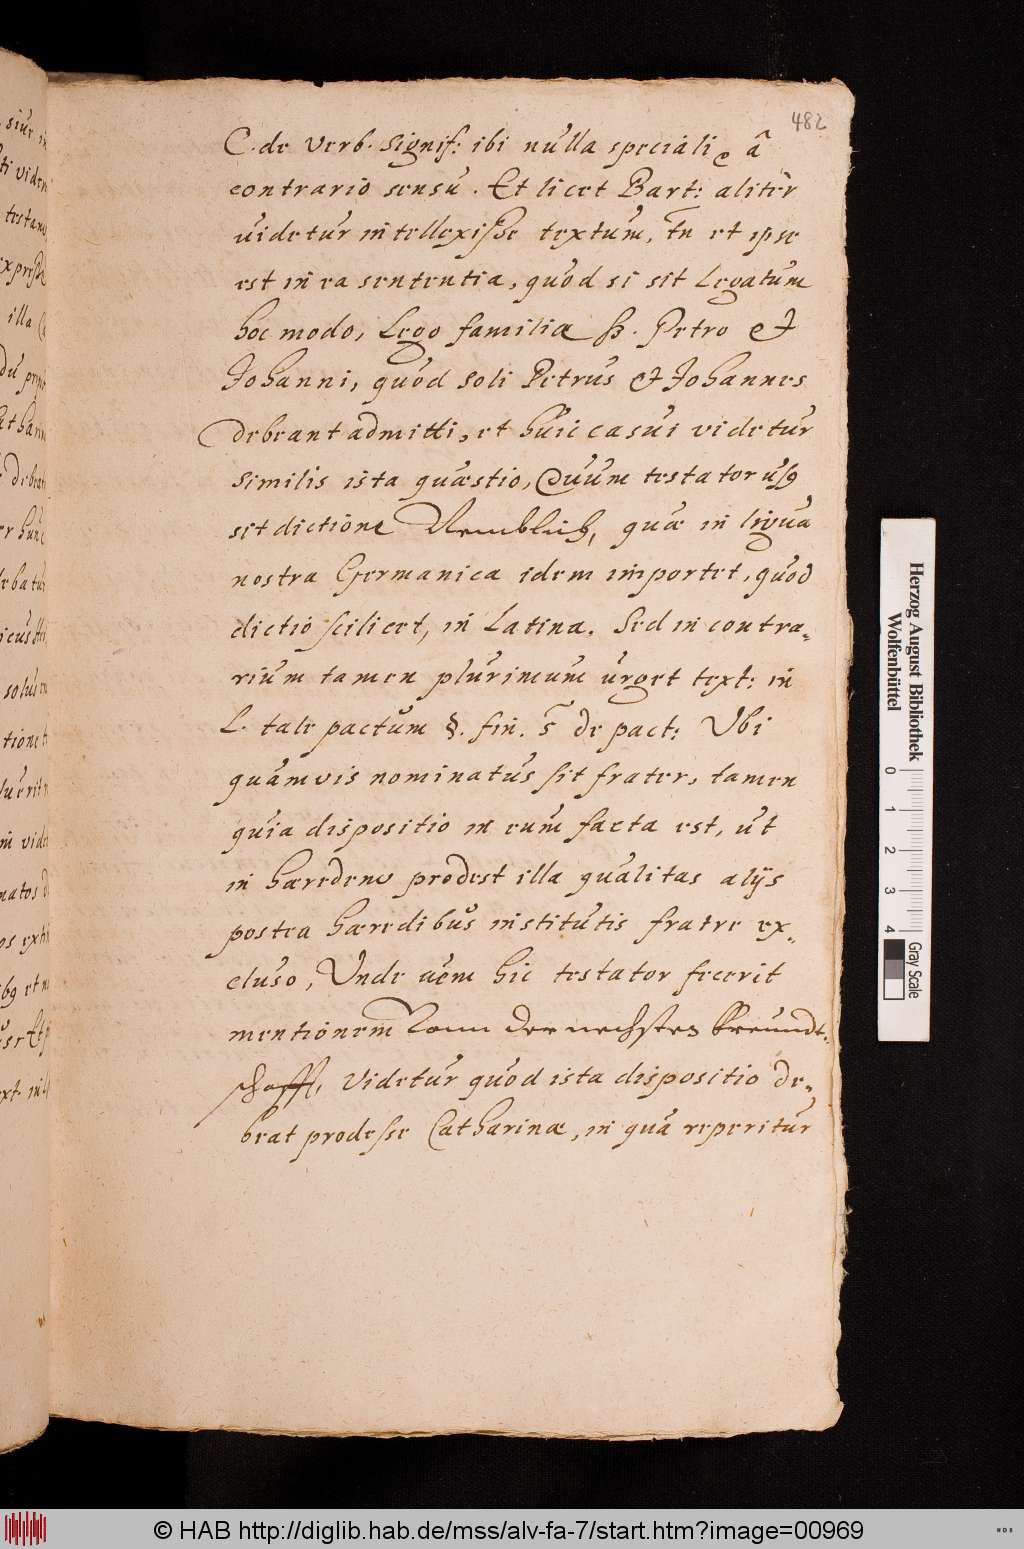 482
C. de verb. signif: ibi nulla speciali, â
contrario sensu. Et licet Bart: aliter
videtur intellexisse textum, tn et ipse
est in ea sententia, quod si sit Legatum
hoc modo, Lego familiæ ß. Petro et
Johanni, quod soli Petrus et Johannes
debeant admitti, et huic casui videtur
similis ista quæstio, Quum testator usq
sit dictione Nemblich, quæ in ligua
nostra Germanica idem importet, quod
dictio scilicet, in Latina. Sed in contra-
rium tamen plurimum urget text: in
L. tale pactum §. fin. s de pact: Ubi
quamvis nominatus sit frater, tamen
quia dispositio in eum facta est, ut
in hæredem prodest illa qualitas alijs
postea hæredibus institutis fratre ex-
cluso, Unde hic testator fecerit
mentionem Vonn der nechsten freundt-
schafft, videtur quod ista dispositio de-
beat prodesse Catharinæ, in qua reperitur
Herzog August Bibliothek
Wolfenbüttel
0 1 2 3 4
Gray Scale
© HAB http://diglib.hab.de/mss/alv-fa-7/start.htm?image=00969